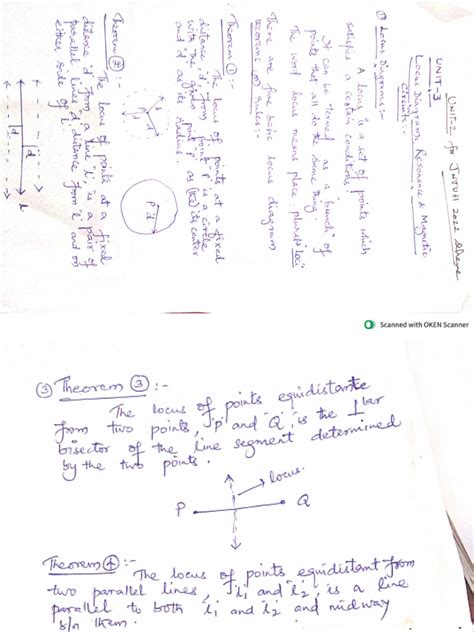 UNIT-2 for JNTUH 2022 Scheme
UNIT-3
Locus Diagrams, Resonance & Magnetic
Circuits:-
① Locus Diagrams:-
A locus is a set of points which
satisfies a certain condition.
It can be termed as a "bunch" of
points that all do the same thing.
The word locus means place, plural loci
There are five basic locus diagram
theorems or rules:-
Theorem ①:-
The locus of points at a fixed
distance 'd' from point P is a circle
with the given point 'P' as its center
and 'd' as its radius.
P
d
Theorem ②:-
The locus of points at a fixed
distance 'd' from a line 'l', is a pair of
parallel lines 'd' distance from 'l' and on
either side of 'l'.
d
d
l
Scanned with OKEN Scanner
③ Theorem ③:-
The locus of points equidistante
from two points, 'P' and 'Q', is the ⊥lar
bisector of the line segment determined
by the two points.
locus.
P
Q
Theorem ④:-
The locus of points equidistant from
two parallel lines, 'l1 and l2, is a line
parallel to both l1 and l2 and midway
b/n them.